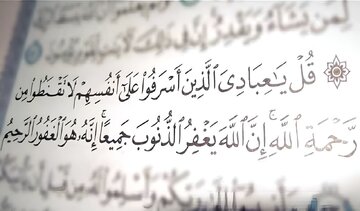 لِمَن يَشَآءُ وَيَقْدِرُ إِنَّ فِي ذَٰلِكَ
قُلْ يَـٰعِبَادِىَ ٱلَّذِينَ أَسْرَفُوا۟ عَلَىٰٓ أَنفُسِهِمْ لَا تَقْنَطُوا۟ مِن
رَّحْمَةِ ٱللَّهِ ۚ إِنَّ ٱللَّهَ يَغْفِرُ ٱلذُّنُوبَ جَمِيعًا ۚ إِنَّهُۥ هُوَ ٱلْغَفُورُ ٱلرَّحِيمُ